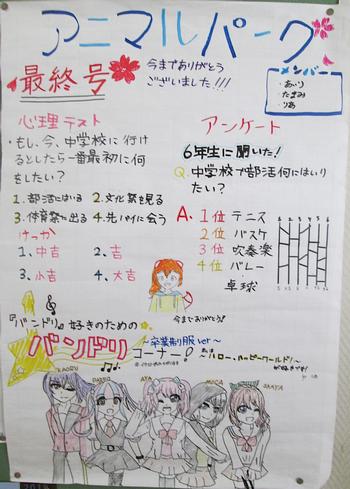 アニマルパーク
最終号
今までありがとう
ございました!!!
メンバー
・あいり
・たまみ
・りあ
心理テスト
・もし、今、中学校に行け
るとしたら一番最初に何
をしたい?
1.部活にはいる 2.文化祭を見る
3.体育祭に出る 4.先パイに会う
けっか
1.中吉 2.吉
3.小吉 4.大吉
アンケート
6年生に聞いた!
Q.中学校で部活何にはいり
たい?
A.1位 テニス
2位 バスケ
3位 吹奏楽
4位 バレー
卓球
今までありがとう!
『バンドリ』好きのための
バンドリ
コーナー!
~卒業制服ver~
~ハロー、ハッピーワールド!~
が好きです!
KAORU
AYA
MOCA
SAAYA